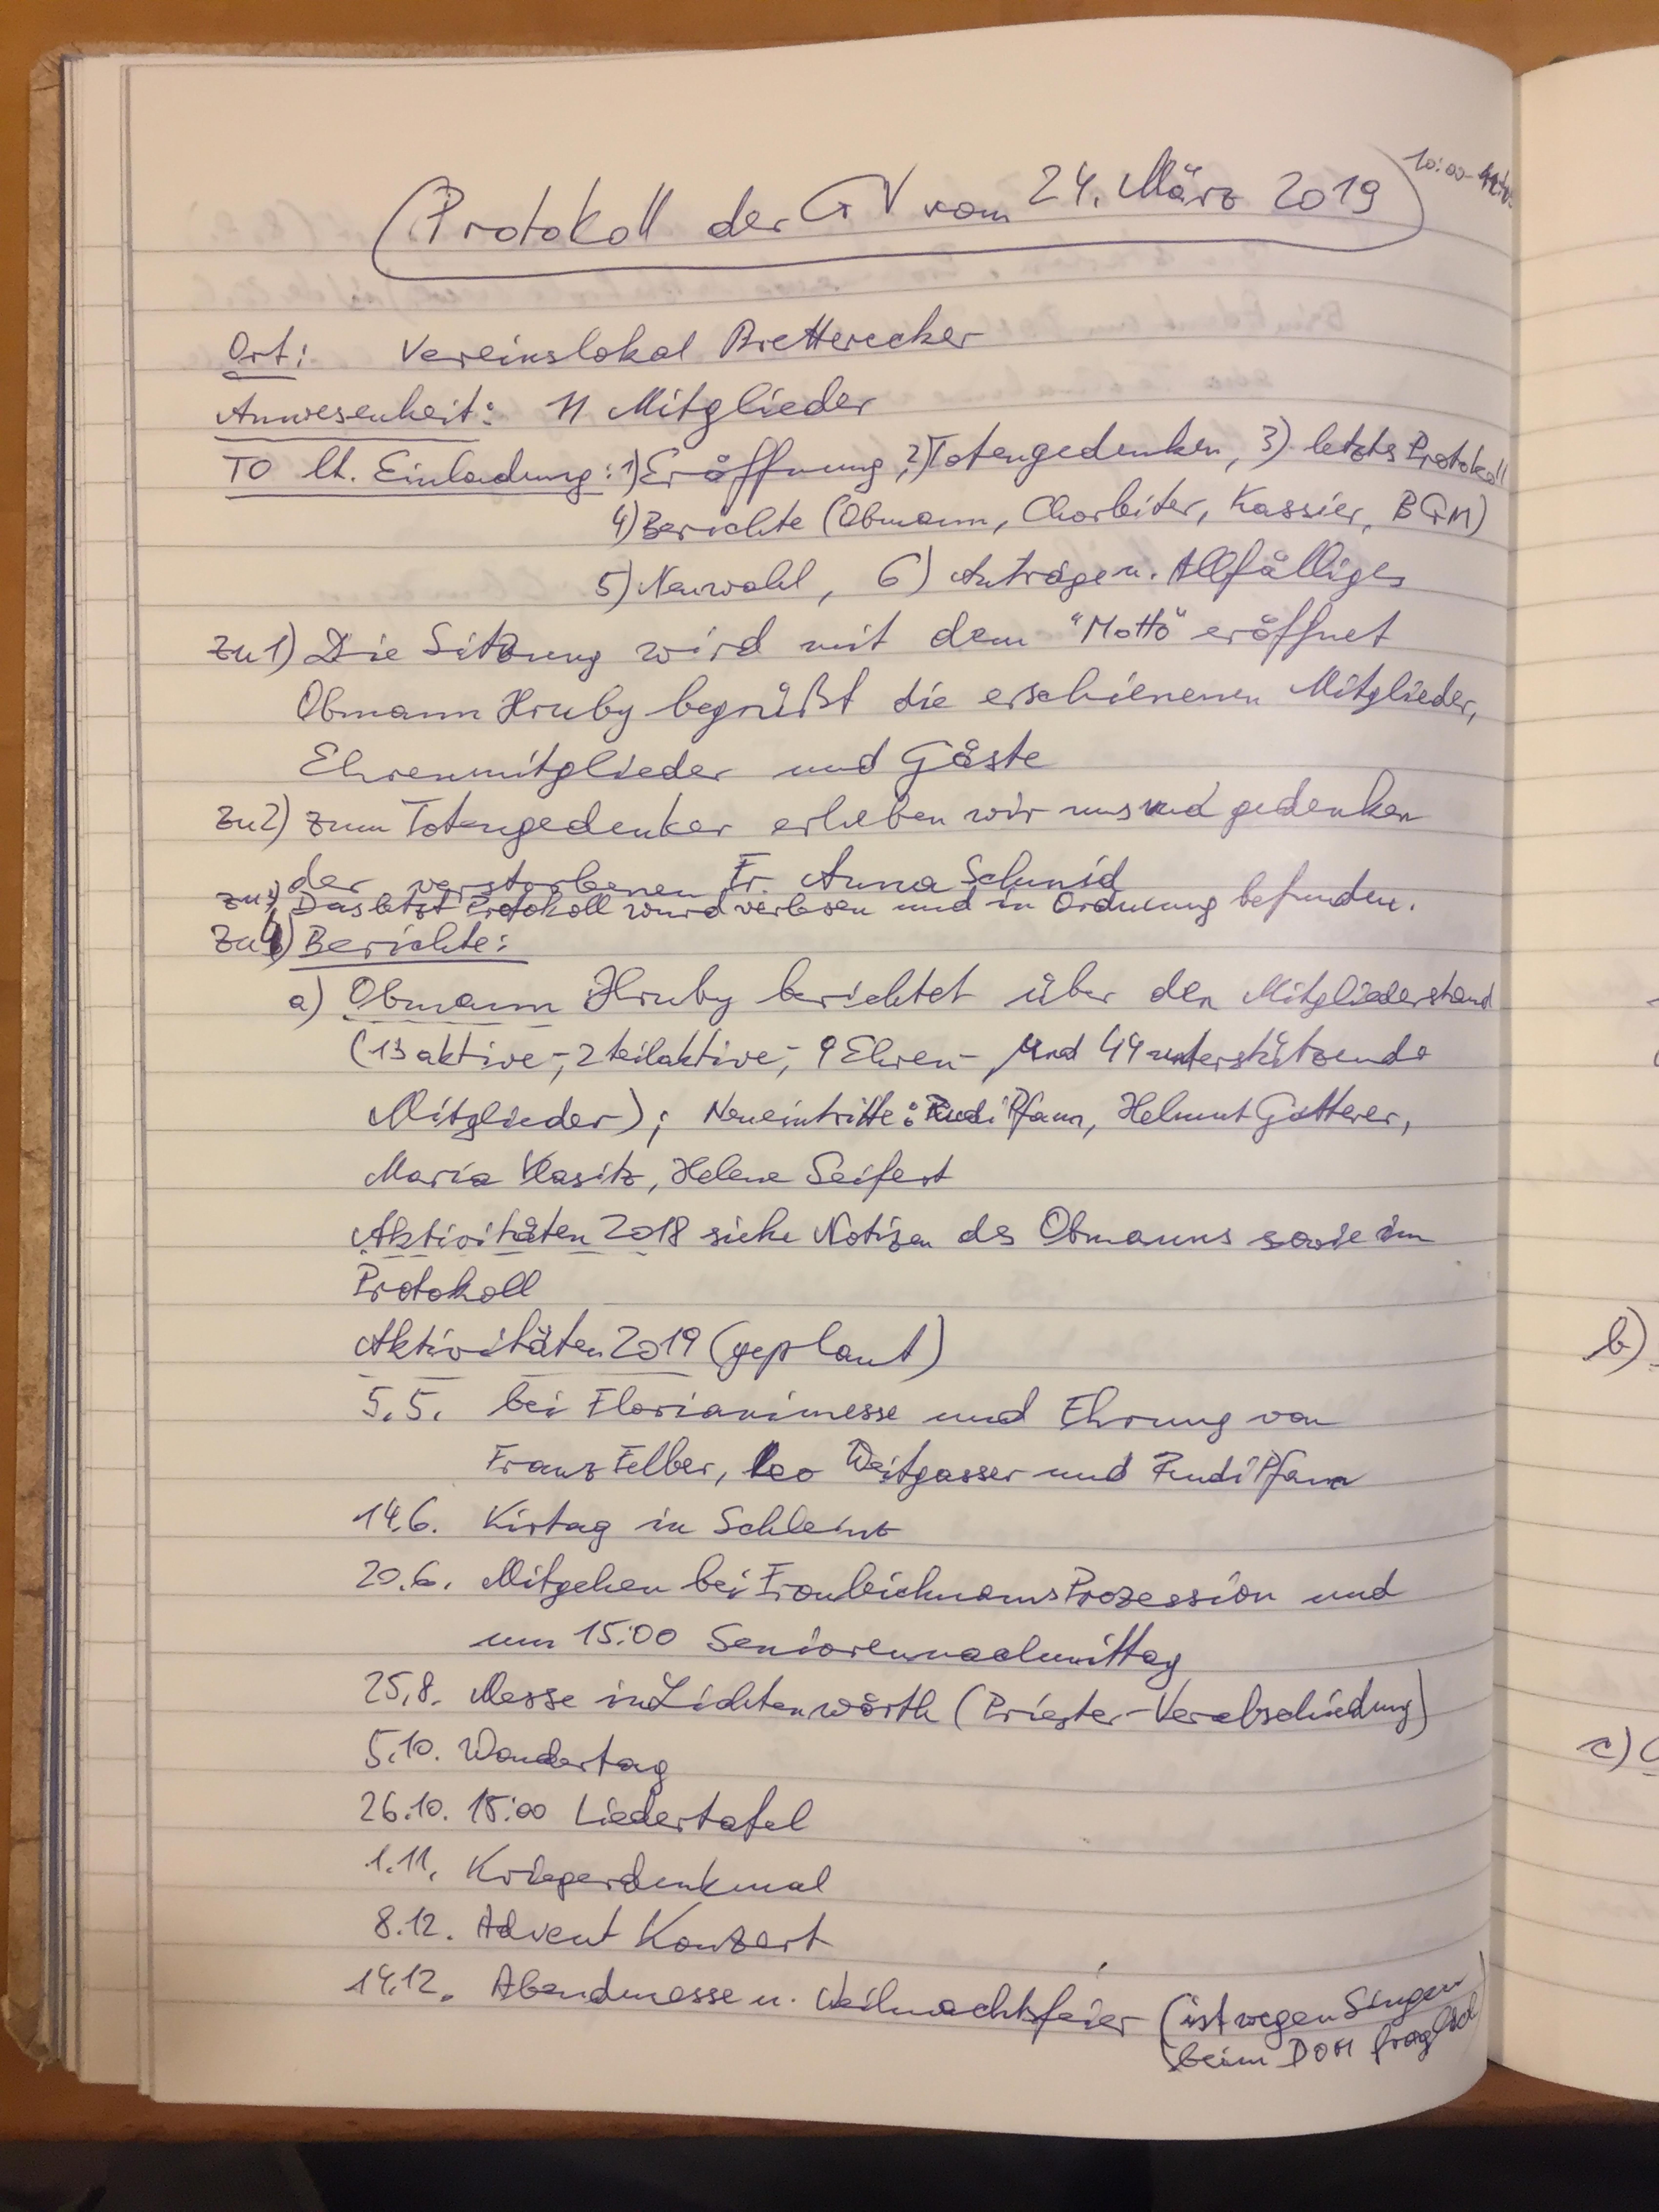 Protokoll der GV vom 24. März 2019
10:00-
Ort: Vereinslokal Bretterecker
Anwesenheit: 11 Mitglieder
TO lt. Einladung: 1) Eröffnung, 2) Totengedenken, 3) letztes Protokoll
4) Berichte (Obmann, Chorleiter, Kassier, BGM)
5) Neuwahl, 6) Anträge u. Allfälliges
zu 1) Die Sitzung wird mit dem "Motto" eröffnet
Obmann Hruby begrüßt die erschienenen Mitglieder,
Ehrenmitglieder und Gäste
zu 2) zum Totengedenken erheben wir uns und gedenken
der verstorbenen Fr. Anna Schmid
zu 3) Das letzt Protokoll wurd verlesen und in Ordnung befunden.
zu 4) Berichte:
a) Obmann Hruby berichtet über den Mitgliederstand
(13 aktive-, 2 teilaktive-, 9 Ehren- und 44 unterstützende
Mitglieder); Neueintritte: Rudi Pfann, Helmut Gotterer,
Maria Vlasitz, Helene Seifert
Aktivitäten 2018 siehe Notizen des Obmanns sowie im
Protokoll
Aktivitäten 2019 (geplant)
5.5. bei Florianimesse und Ehrung von
Franz Felber, Leo Weitgasser und Rudi Pfann
14.6. Kirtag in Schleinz
20.6. Mitgehen bei Fronleichnams Prozession und
um 15:00 Seniorennachmittag
25.8. Messe in Lichtenwörth (Priester-Verabschiedung)
5.10. Wandertag
26.10. 15:00 Liedertafel
1.11. Kriegerdenkmal
8.12. Advent Konzert
14.12. Abendmesse u. Weihnachtsfeier (ist wegen Singen
beim DOM fraglich)
b)
c)